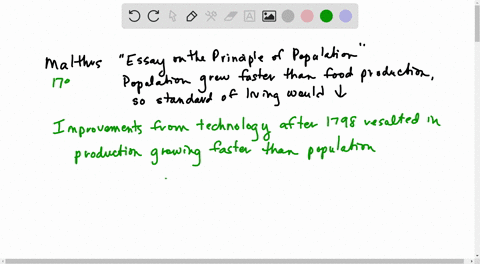 Malthus "Essay on the Principle of Population"
170 Population grew faster than food production,
so standard of living would ↓
Improvements from technology after 1798 resulted in
production growing faster than population